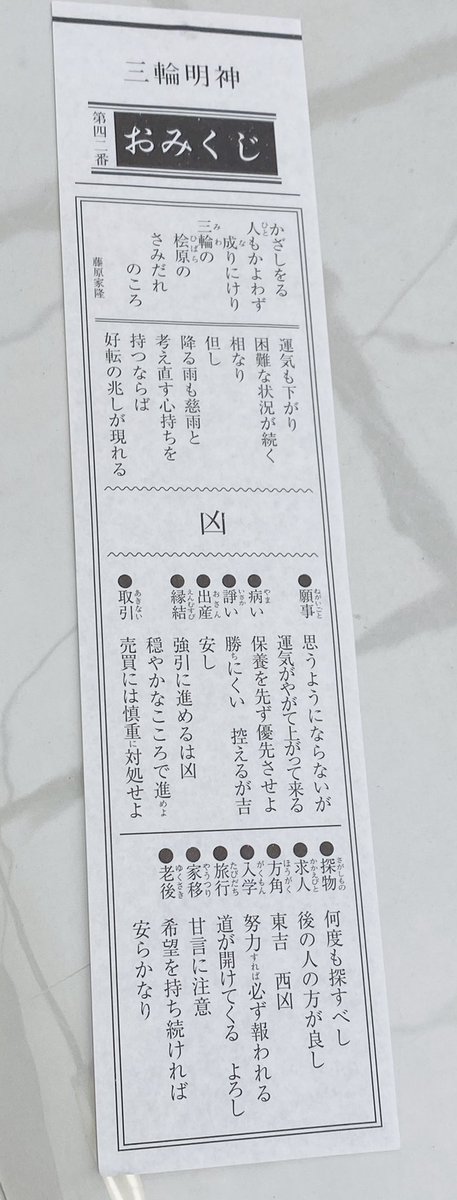 三輪明神
おみくじ
第四二番
かざしをる
人もかよわず
成りにけり
三輪の
桧原の
さみだれ
のころ
藤原家隆
運気も下がり
困難な状況が続く
相なり
但し
降る雨も慈雨と
考え直す心持ちを
持つならば
好転の兆しが現れる
凶
●願事 思うようにならないが
運気がやがて上がって来る
●病い 保養を先ず優先させよ
●諍い 勝ちにくい 控えるが吉
●出産 安し
●縁結 強引に進めるは凶
穏やかなこころで進めよ
●取引 売買には慎重に対処せよ
●探物 何度も探すべし
●求人 後の人の方が良し
●方角 東吉 西凶
●入学 努力すれば必ず報われる
●旅行 道が開けてくる よろし
●家移 甘言に注意
●老後 希望を持ち続ければ
安らかなり